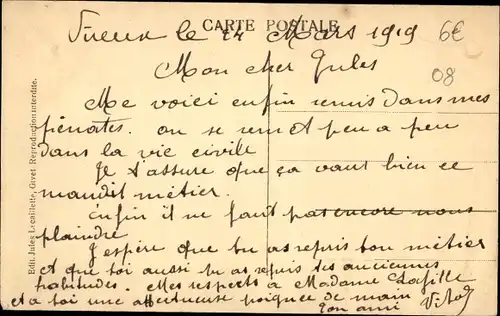 CARTE POSTALE
Vireux le 24 Mars 1919
6€
08
Mon cher Jules
Me voici enfin remis dans mes
pénates. on se remet peu a peu
dans la vie civile
Je t'assure que ça vaut bien ce
maudit métier.
Enfin il ne faut pas encore nous
plaindre
J'espère que tu as repris ton métier
et que toi aussi tu as repris des anciennes
habitudes. Mes respects à Madame Lafille
et a toi une affectueuse poignée de main
Ton ami
Edit. Jules Lecaillette, Givet. Reproduction interdite.